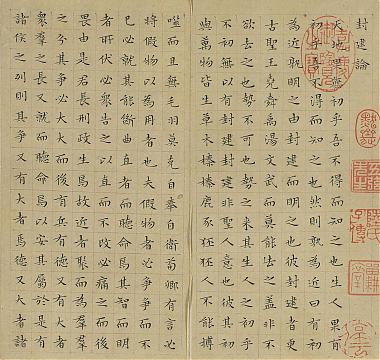 封建論
天地果無初乎吾不得而知之也生人果有
初乎吾不得而知之也然則孰為近曰有初
為近孰明之由封建而明之也彼封建者更
古聖王堯舜禹湯文武而莫能去之蓋非不
欲去之也勢不可也勢之來其生人之初乎
不初無以有封建封建非聖人意也彼其初
與萬物皆生草木榛榛鹿豕狉狉人不能搏
噬而且無毛羽莫克自奉自衛荀卿有言必
將假物以為用者也夫假物者必爭爭而不
已必就其能斷曲直者而聽命焉其智而明
者所伏必衆告之以直而不改必痛之而後
畏由是君長刑政生焉故近者聚而為羣羣
之分其爭必大大而後有兵有德又有大者
衆羣之長又就而聽命焉以安其屬於是有
諸侯之列則其爭又有大者焉德又大者諸